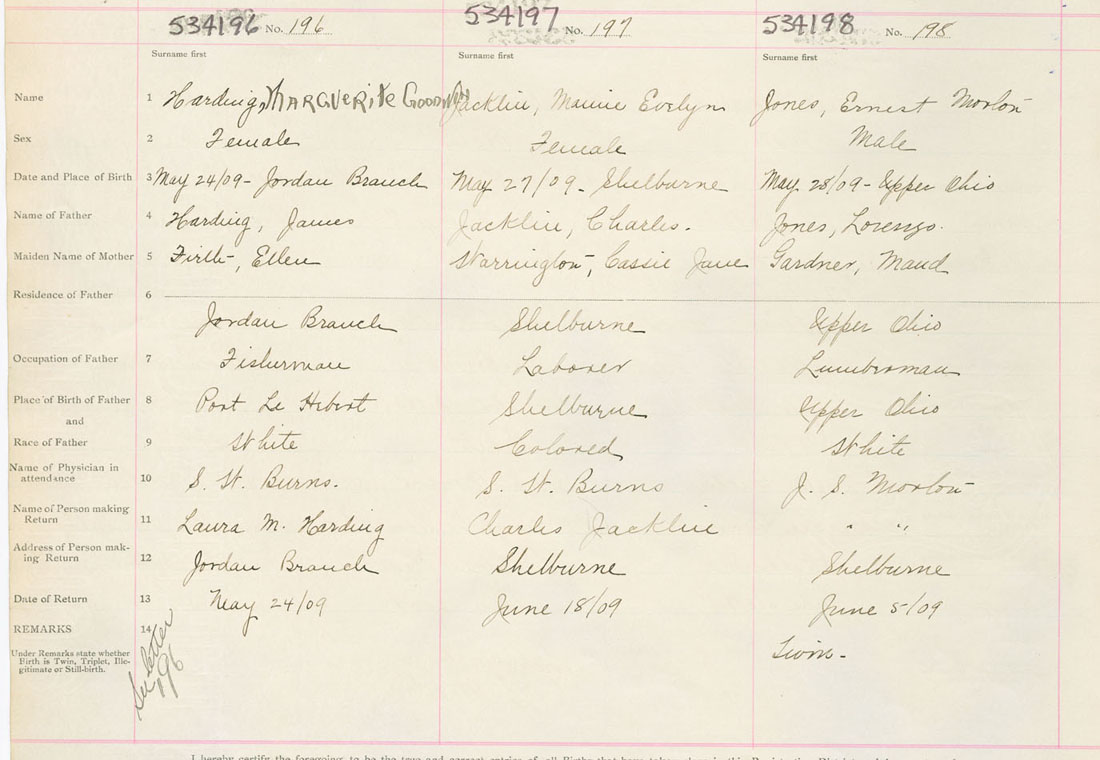 534196 No. 196 534197 No. 197 534198 No. 198
Surname first Surname first Surname first
Name 1 Harding, MARGUERITE GOODWIN Jacklin, Mamie Evelyn Jones, Ernest Morton
Sex 2 Female Female Male
Date and Place of Birth 3 May 24/09 - Jordan Branch May 27/09 - Shelburne May 28/09 - Upper Ohio
Name of Father 4 Harding, James Jacklin, Charles. Jones, Lorenzo.
Maiden Name of Mother 5 Firth, Ellen Warrington, Cassie Jane Gardner, Maud
Residence of Father 6
Jordan Branch Shelburne Upper Ohio
Occupation of Father 7 Fisherman Laborer Lumberman
Place of Birth of Father 8 Port Le Hebert Shelburne Upper Ohio
and
Race of Father 9 White Colored White
Name of Physician in
attendance 10 S. W. Burns. S. W. Burns J. S. Morton
Name of Person making
Return 11 Laura M. Harding Charles Jacklin " "
Address of Person mak-
ing Return 12 Jordan Branch Shelburne Shelburne
Date of Return 13 May 24/09 June 18/09 June 5/09
REMARKS 14
Under Remarks state whether
Birth is Twin, Triplet, Ille-
gitimate or Still-birth.
Twin -
See letter
196
I hereby certify the foregoing to be the true and correct entries of all Births that have taken place in this Registration District